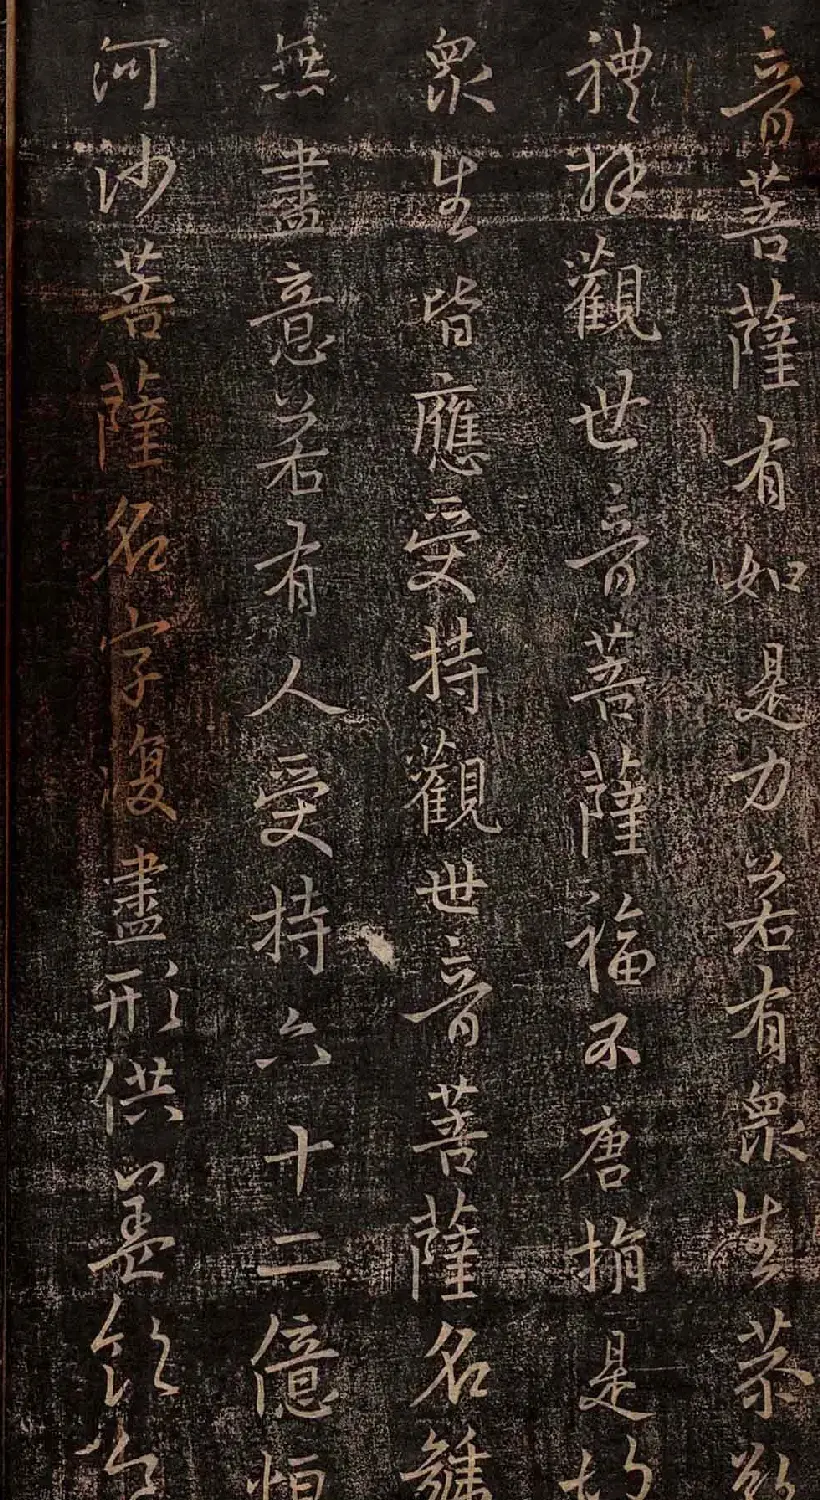 音菩薩有如是力若有衆生恭敬
禮拜觀世音菩薩福不唐捐是故
衆生皆應受持觀世音菩薩名號
無盡意若有人受持六十二億恒
河沙菩薩名字復盡形供養飲食